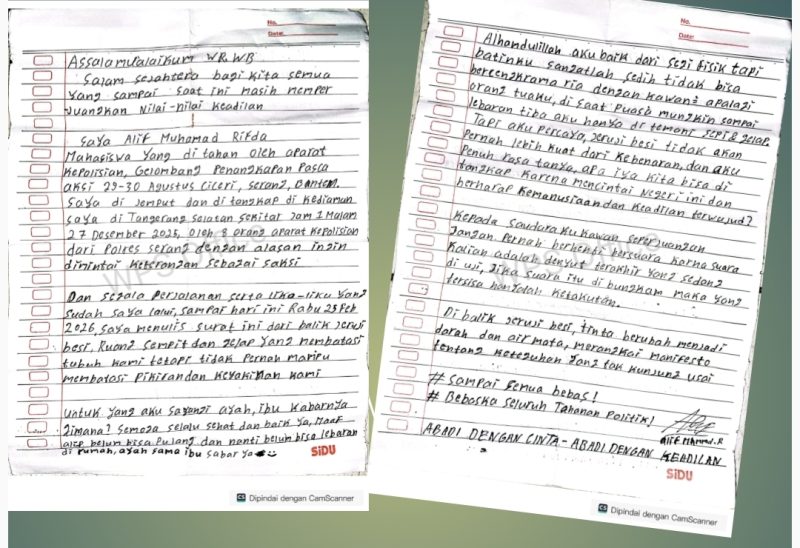 No.
Date:
Assalamu'alaikum WR.WB
Salam Sejahtera bagi kita semua
yang sampai saat ini masih memper
juangkan Nilai-nilai keadilan
Saya Alif Muhamad Rifda
Mahasiswa yang di tahan oleh aparat
kepolisian, Gelombang Penangkapan Pasca
aksi 29-30 Agustus Ciceri, serang, Banten.
Saya di Jemput dan di tangkap di Kediaman
saya di Tangerang selatan sekitar Jam 1 Malam
27 Desember 2025, Oleh 8 orang aparat Kepolisian
dari Polres serang dengan alasan ingin
dimintai keterangan sebagai saksi.
Dan segala Perjalanan serta lika-liku yang
sudah saya lalui, sampai hari ini Rabu 25 Feb
2026, saya menulis surat ini dari balik Jeruji
besi, Ruang sempit dan gelap yang membatasi
tubuh kami tetapi tidak Pernah mampu
membatasi pikiran dan keyakinan kami
untuk yang aku sayangi ayah, ibu kabarnya
gimana? Semoga selalu sehat dan baik ya, Maaf
alip belum bisa pulang dan nanti belum bisa lebaran
di rumah, ayah sama ibu sabar ya
SiDU
WPS Office
CS Dipindai dengan CamScanner
No.
Date:
Alhamdulillah aku baik dari segi fisik tapi
batinku sangatlah sedih tidak bisa
bercengkrama ria dengan kawan² apalagi
orang tuaku, di saat Puasa mungkin sampai
lebaran tiba aku hanya di temani sepi & gelap.
Tapi aku percaya, jeruji besi tidak akan
Pernah lebih kuat dari kebenaran, dan aku
Penuh rasa tanya, apa iya kita bisa di
tangkap karena mencintai Negeri ini dan
berharap kemanusiaan dan keadilan terwujud?
kepada saudaraku kawan seperjuangan
Jangan Pernah berhenti bersuara karna suara
kalian adalah denyut terakhir yang sedang
di uji, Jika suara itu di bungkam maka yang
tersisa hanyalah ketakutan.
Di balik jeruji besi, tinta berubah menjadi
darah dan air mata, merangkai manifesto
tentang keteguhan yang tak kunjung usai
# Sampai semua bebas!
# Bebaska seluruh Tahanan Politik!
Alif Muhmad.R
ABADI DENGAN CINTA - ABADI DENGAN KEADILAN
SiDU
WPS Office
CS Dipindai dengan CamScanner